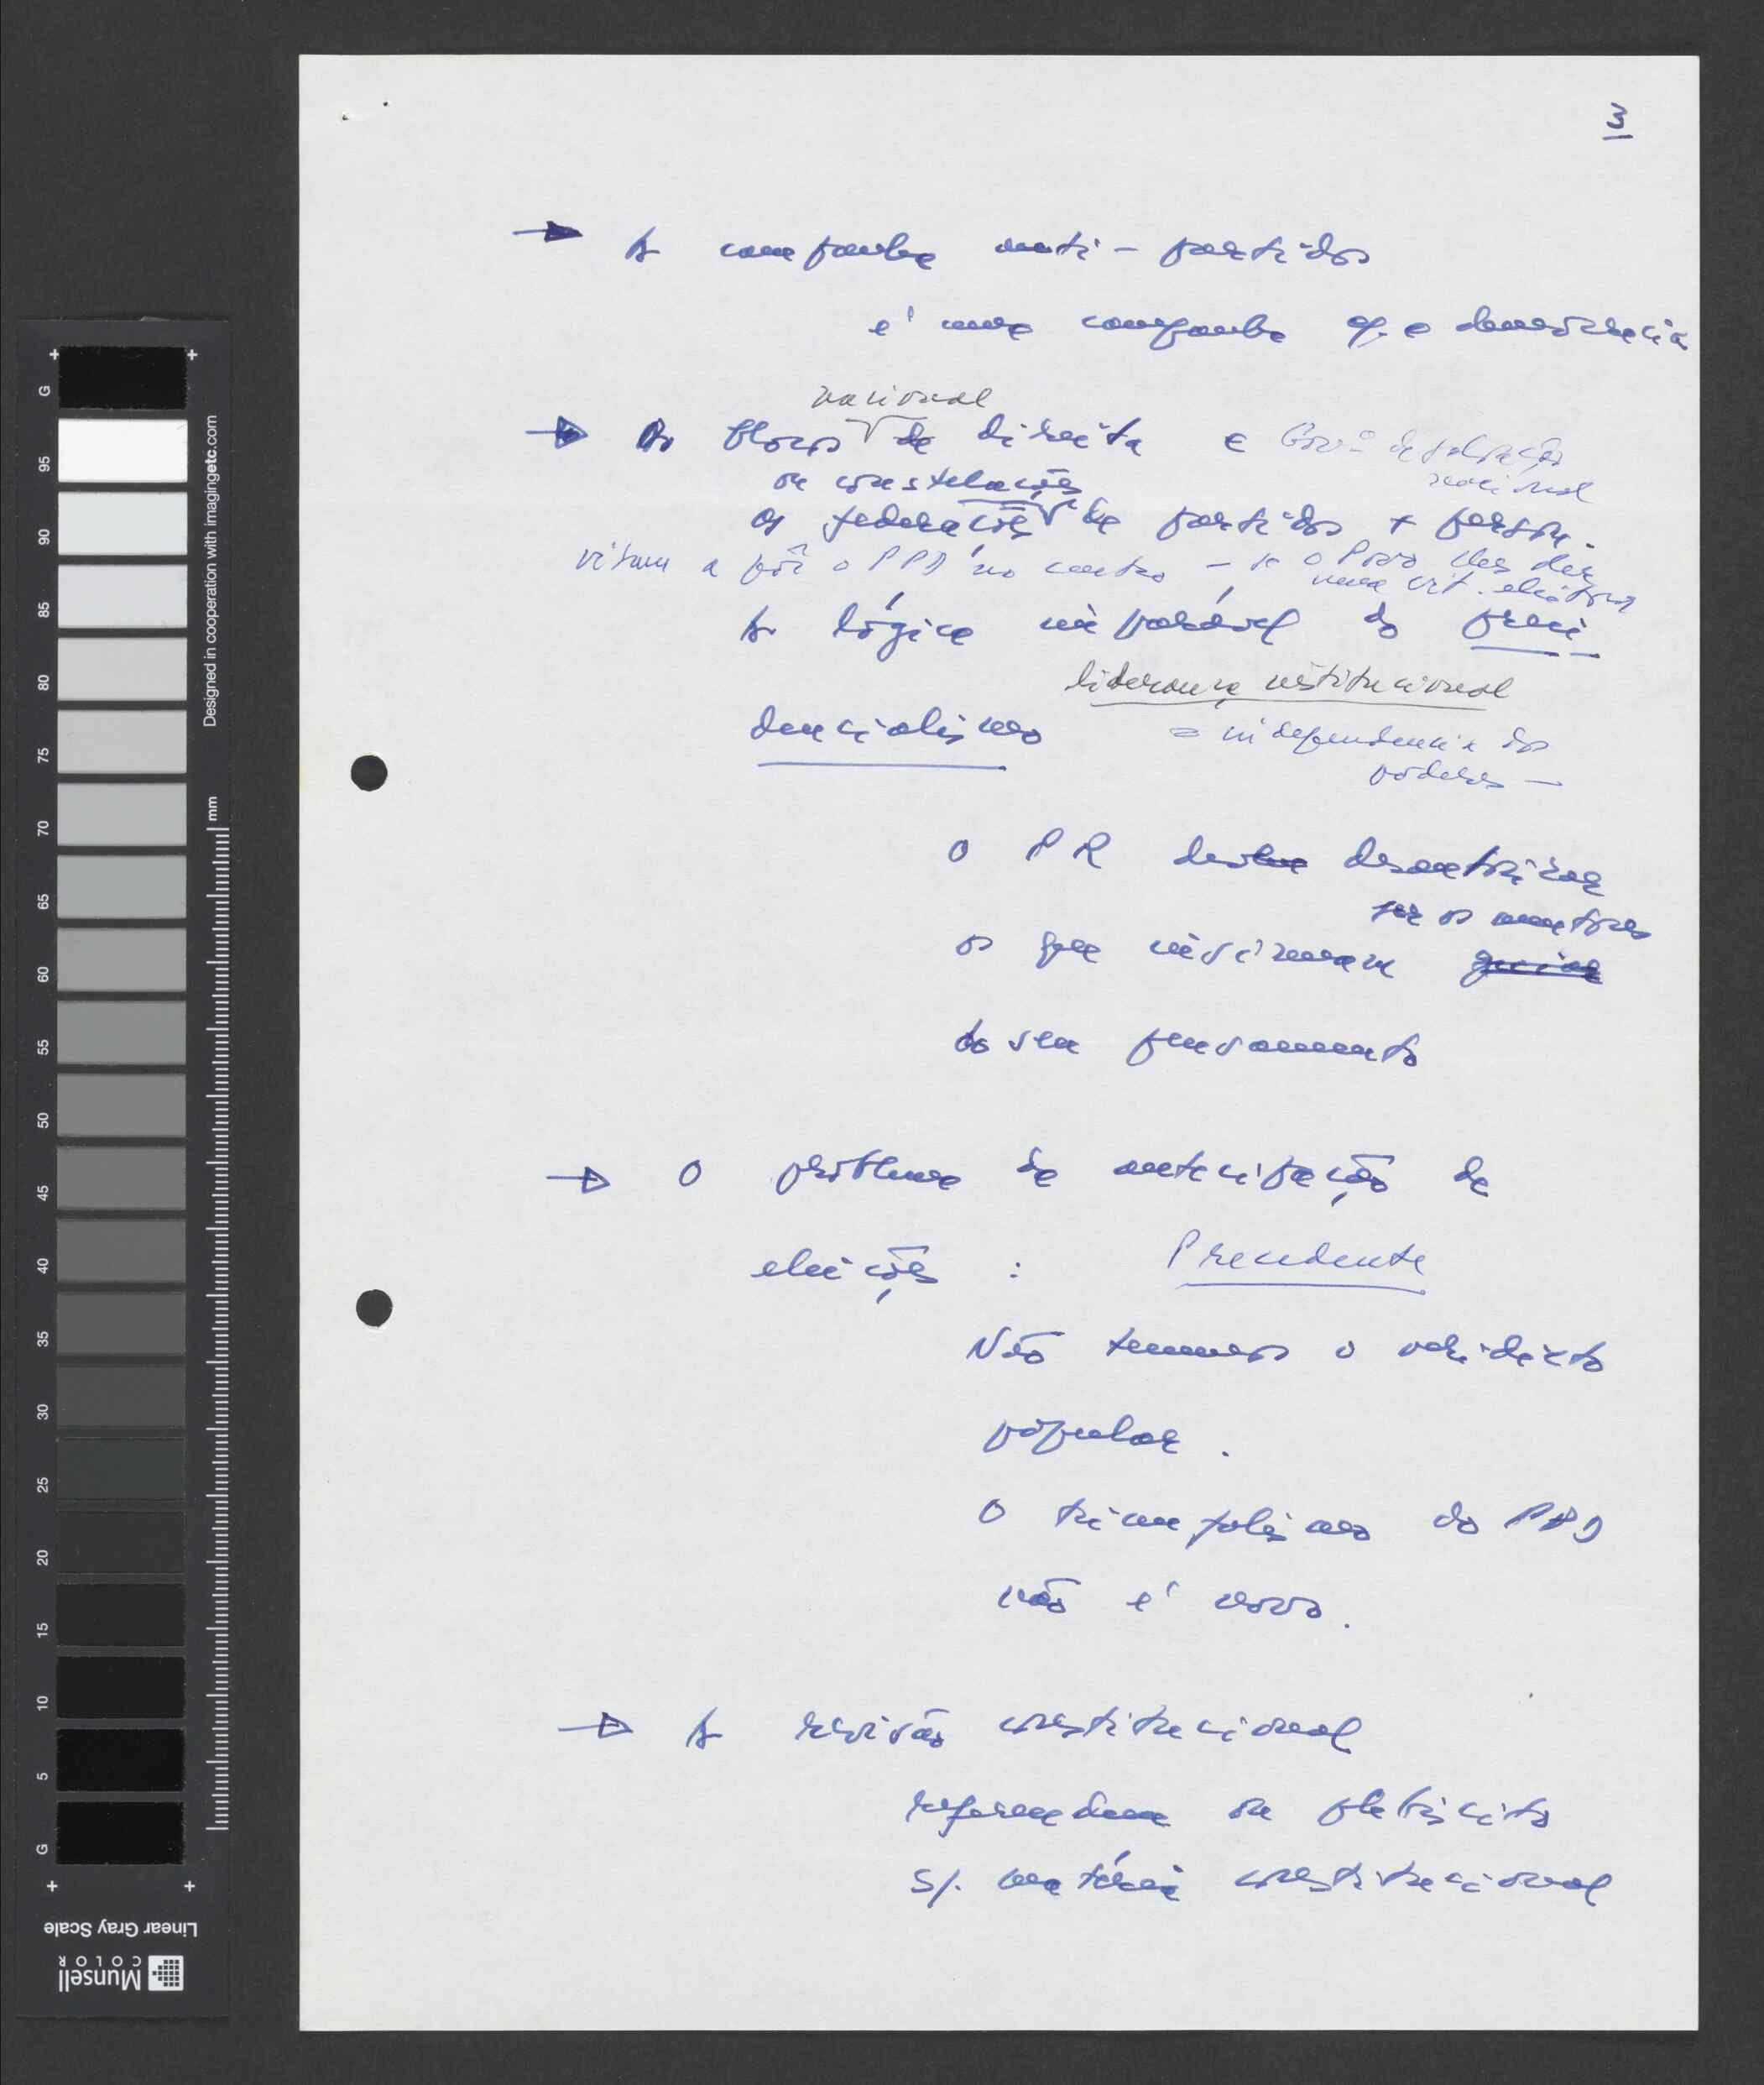 3
→ A campanha anti-partidos
é uma campanha q. a democracia
nacional
→ Os blocos de direita e Govº de salvação
nacional
ou constelações
as federações de partidos + person.
visam a pôr o PPD no centro – se o Povo lhes der
uma vit. eleitoral
A lógica imparável do presi-
liderança institucional
dencialismo = independência dos
poderes –
O PR deve desautorizar
ser os mentores
os que insinuam guiar
do seu pensamento
→ O problema da antecipação de
eleições : Precedente
Não tememos o veridicto
popular.
O triunfalismo do PPD
não é novo.
→ A revisão constitucional
referendum ou plebiscito
s/. matéria constitucional
G
95
90
85
80
75
70
65
60
55
50
45
40
35
30
25
20
15
10
5
G
mm
Designed in cooperation with imagingetc.com
Linear Gray Scale
Munsell
COLOR